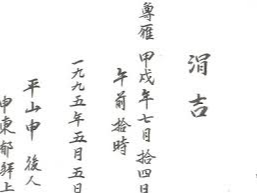 涓吉
尊雁 甲戌年七月拾四日
午前拾時
一九九五年五月五日
平山申 後人
申東郁 拜上